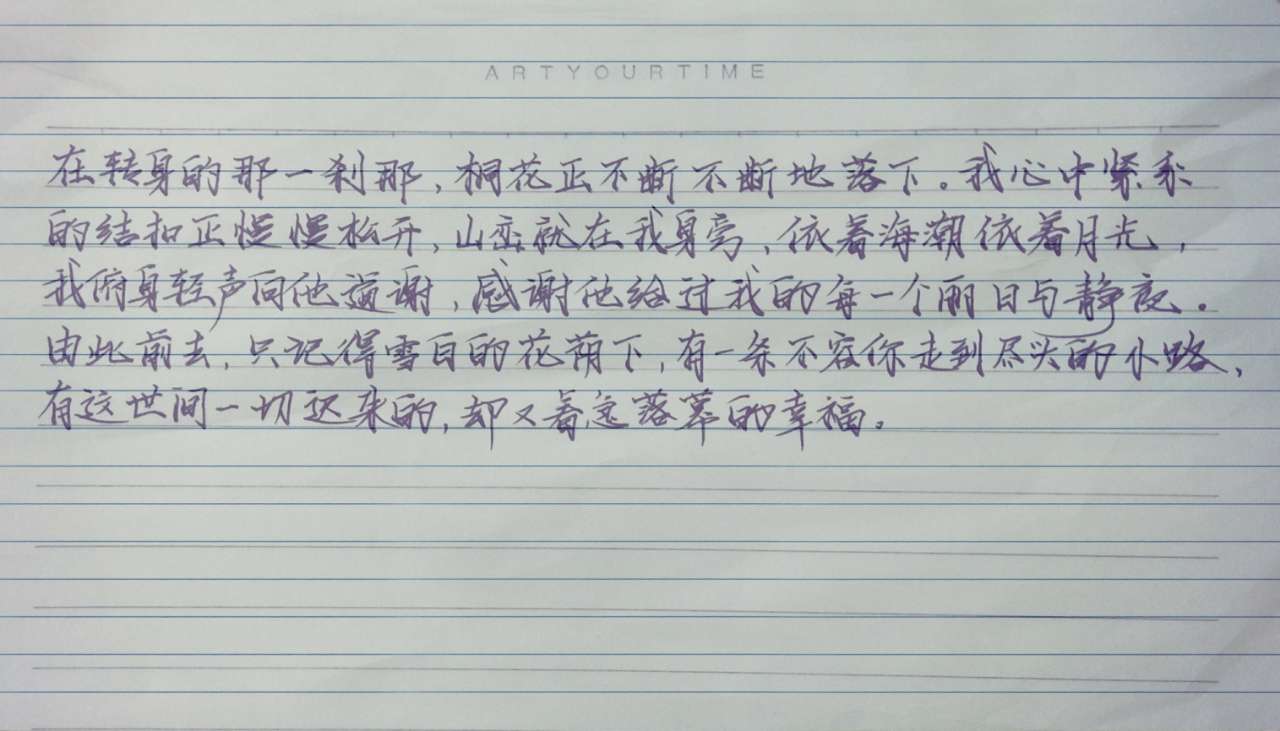 ARTYOURTIME
在转身的那一刹那，桐花正不断不断地落下。我心中紧系
的结扣正慢慢松开，山峦就在我身旁，依着海潮依着月光，
我俯身轻声向他道谢，感谢他给过我的每一个丽日与静夜。
由此前去，只记得雪白的花荫下，有一条不容你走到尽头的小路，
有这世间一切迟来的，却又着急落幕的幸福。